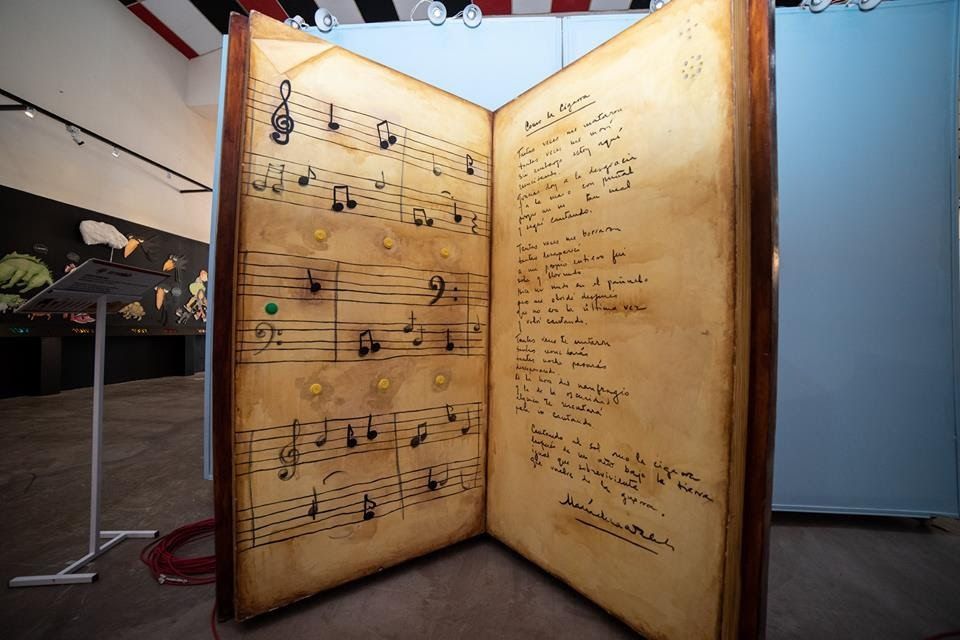 Como la Cigarra
Tantas veces me mataron
tantas veces me morí
sin embargo estoy aquí
resucitando.
Gracias doy a la desgracia
y a la mano con puñal
porque me mató tan mal
y seguí cantando.
Tantas veces me borraron
tantas desaparecí
a mi propio entierro fui
sola y llorando.
Hice un nudo en el pañuelo
pero me olvidé después
que no era la última vez
y volví cantando.
Tantas veces te mataron
tantas
tantas noches pasarás
desesperando.
A la hora del naufragio
y la de la oscuridad
alguien te rescatará
para ir cantando.
Cantando al sol como la cigarra
después de un año bajo la tierra
igual que sobreviviente
que vuelve de la guerra.
María Elena Walsh